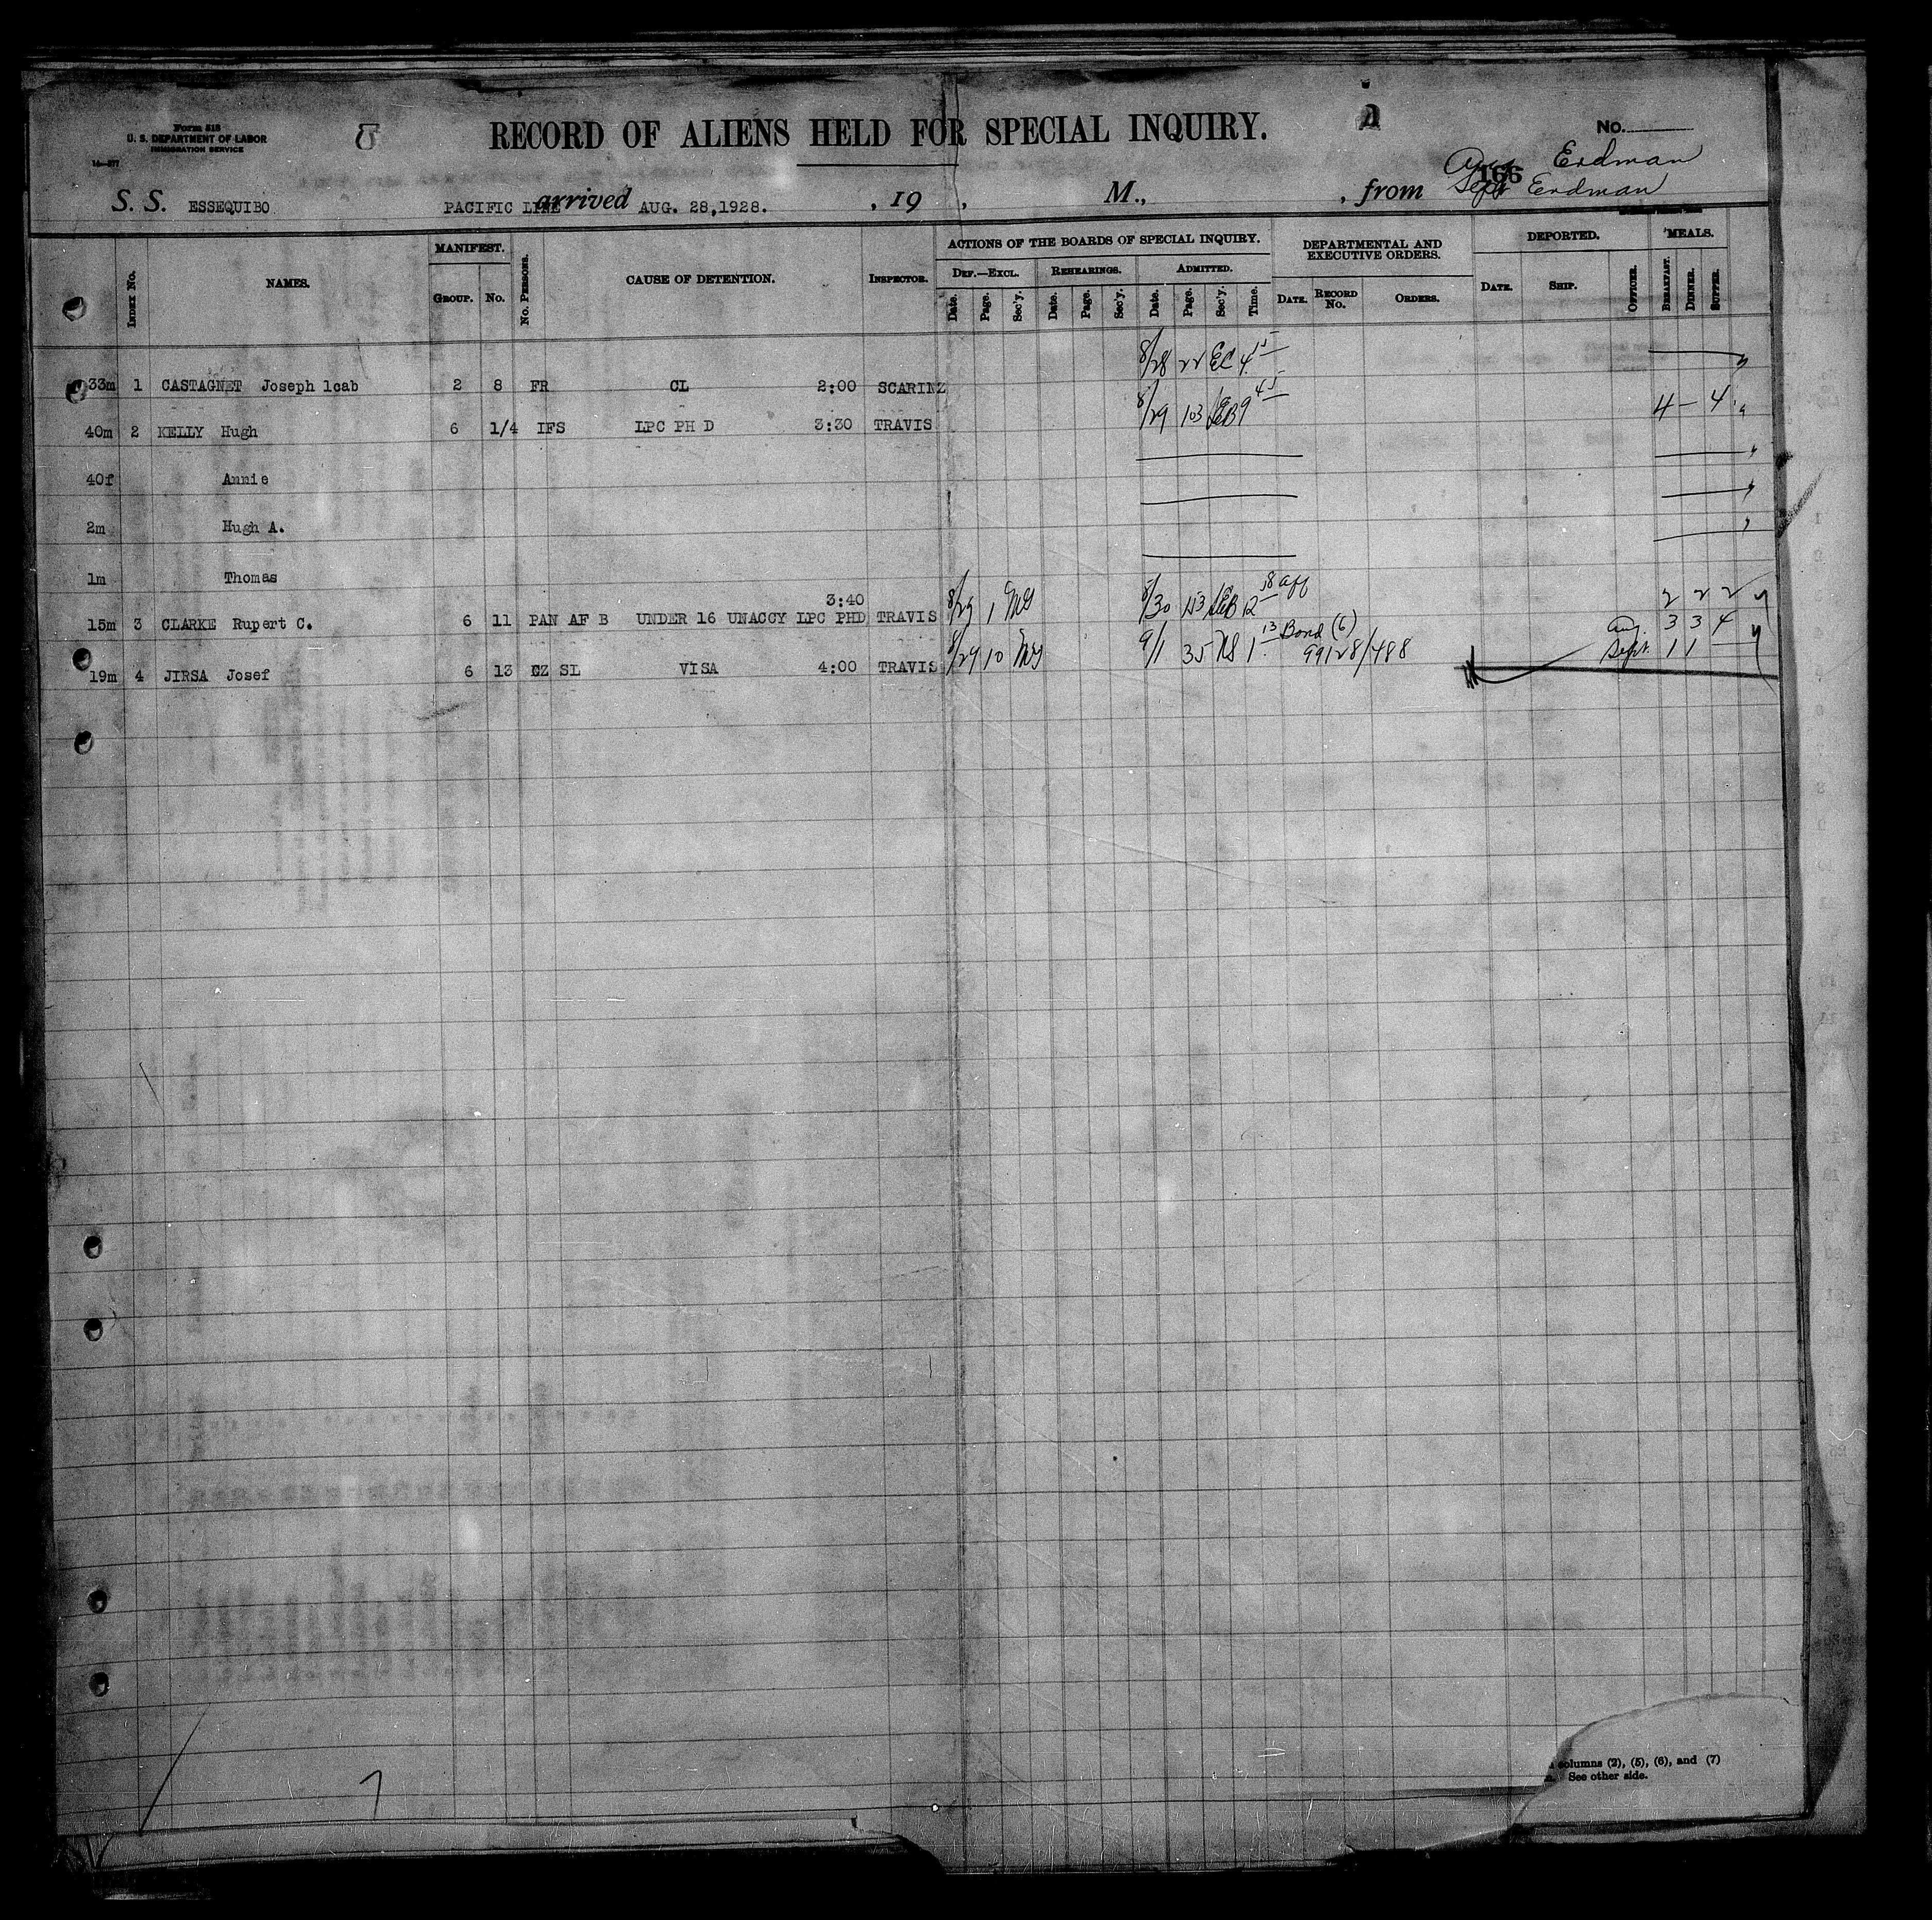 Form 518
U. S. DEPARTMENT OF LABOR
IMMIGRATION SERVICE
14—877
RECORD OF ALIENS HELD FOR SPECIAL INQUIRY.
No.
Aug Erdman
166
Sept Erdman
S. S. ESSEQUIBO PACIFIC LINE arrived AUG. 28,1928. , 19 , M., , from
INDEX No. NAMES. MANIFEST. GROUP. No. No. PERSONS. CAUSE OF DETENTION. INSPECTOR. ACTIONS OF THE BOARDS OF SPECIAL INQUIRY. DEF.—EXCL. Date. Page. Sec'y. REHEARINGS. Date. Page. Sec'y. ADMITTED. Date. Page. Sec'y. Time. DEPARTMENTAL AND EXECUTIVE ORDERS. DATE. RECORD No. ORDERS. DEPORTED. DATE. SHIP. OFFICER. MEALS. BREAKFAST. DINNER. SUPPER.
33m 1 CASTAGNET Joseph 1cab 2 8 FR CL 2:00 SCARINZ 8/28 22 EC 4 15
40m 2 KELLY Hugh 6 1/4 IFS LPC PH D 3:30 TRAVIS 8/29 103 9 45 4 — 4
40f Annie
2m Hugh A.
1m Thomas
15m 3 CLARKE Rupert C. 6 11 PAN AF B UNDER 16 UNACCY LPC PHD 3:40 TRAVIS 8/29 1 8/30 153 12 18 aff 2 2 2
19m 4 JIRSA Josef 6 13 CZ SL VISA 4:00 TRAVIS 8/29 10 9/1 35 NS 1 13 Bond (6) 99128/488 Aug. 3 3 4
Sept. 1 1 —
columns (2), (5), (6), and (7)
See other side.